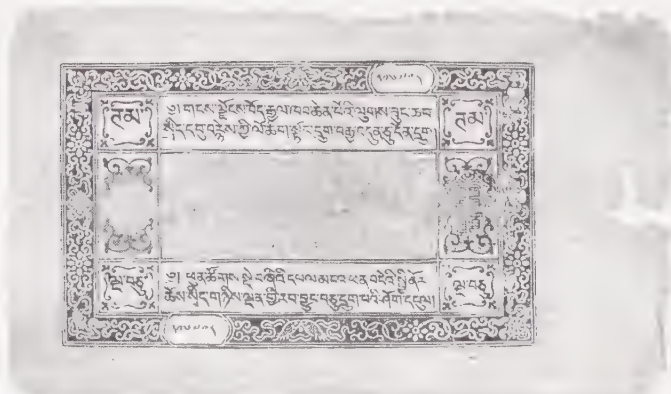 ཊམ
༄། གངས་ལྗོངས་བོད་རྒྱལ་ཁབ་ཆེན་པོའི་ལུགས་ཟུང་ཆབ
སྲིད་དབུ་བརྙེས་ཀྱི་ལོ་ཆིག་སྟོང་དྲུག་བརྒྱ་བདུན་ཅུ་དོན་དྲུག
ཊམ
ལྔ་བཅུ
༄། ཕུན་ཚོགས་སྡེ་བཞིའི་དཔལ་མངའ་ཕན་བདེའི་སྤྱི་ནོར
ཆོས་སྲིད་གཉིས་ལྡན་གྱི་རབ་བྱུང་བཅུ་དྲུག་པའི་ཤོག་དངུལ།
ལྔ་བཅུ